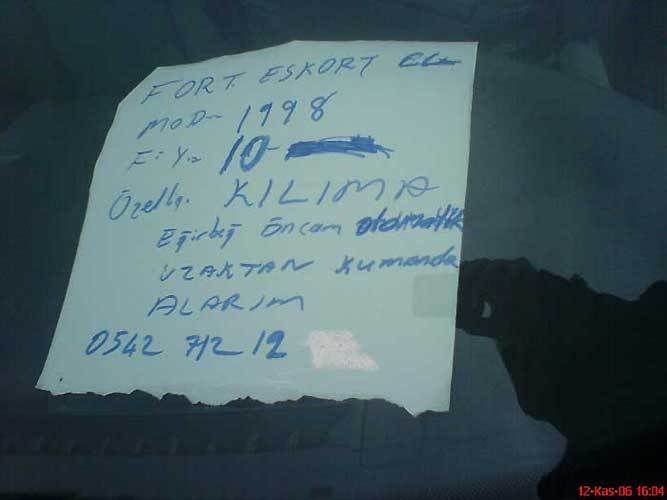 FORT ESKORT CL
MOD- 1998
Fi Y.. 10-
Özellg. KILIMA
Eğirbeğ Öncam otomatik
UZAKTAN kumanda
ALARIM
0542 712 12
12-Kas-06 16:04